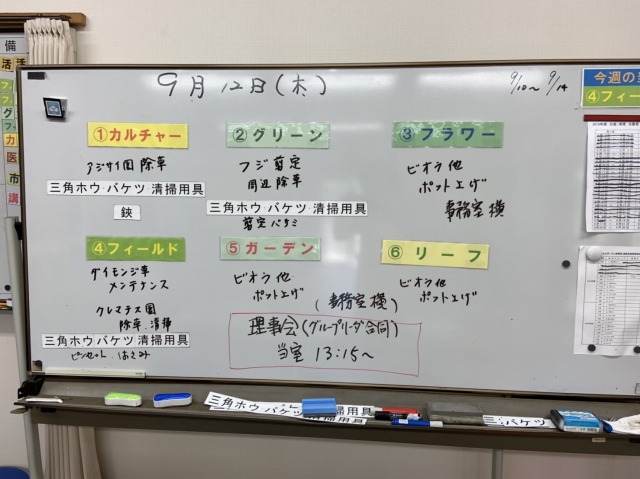 9月12日(木)
9/10～9/14
今週の
④フィー
備
活
活
①カルチャー
アジサイ園 除草
三角ホウ・バケツ・清掃用具
鋏
②グリーン
フジ剪定
周辺除草
三角ホウ・バケツ・清掃用具
剪定バサミ
③フラワー
ビオラ他
ポット上げ
事務室横
④フィールド
ダイモンジ草
メンテナンス
クレマチス園
除草、清掃
三角ホウ・バケツ・清掃用具
ピンセット はさみ
⑤ガーデン
ビオラ他
ポット上げ
(事務室横)
⑥リーフ
ビオラ他
ポット上げ
理事会(グループリーダ合同)
当室 13:15～
三角ホウ・バケツ
清掃用具
三
バケツ